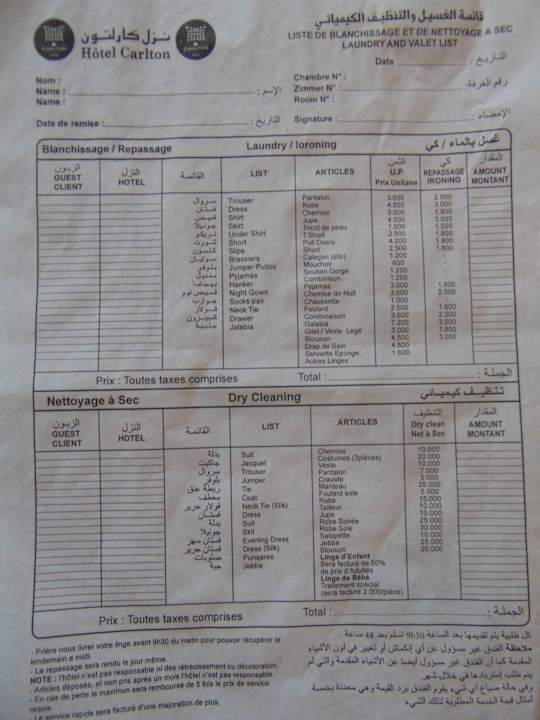 نزل كارلتون
Hôtel Carlton
CARLTON
CARLTON
قائمة الغسيل والتنظيف الكيميائي
LISTE DE BLANCHISSAGE ET DE NETTOYAGE A SEC
LAUNDRY AND VALET LIST
Date : التاريخ
Nom :
Name : الإسم :
Name :
Chambre N° :
Zimmer N° : رقم الغرفة:
Room N° :
Date de remise : التاريخ :
Signature : الإمضاء:
Blanchissage / Repassage Laundry / Ioroning غسل بالماء / كي
الزبون GUEST CLIENT النزل HOTEL القائمة LIST ARTICLES الثمن U.P. Prix Unitaire كي REPASSAGE IRONING المقدار AMOUNT MONTANT
سروال Trouser Pantalon 3.600 2.500
فستان Dress Robe 4.500 3.000
قميص Shirt Chemise 3.000 1.800
جونيلا Skirt Jupe 4.500 3.000
تريكو Under Shirt Tricot de peau 1.500 1.500
شورت Short T.Short 2.500 1.800
كلسون Slips Pull Overs 4.200 1.800
سوتيان Brassiers Short 2.500 1.800
بلوفر Jumper Pullov Caleçon (slip) 1.200
Pyjamas Mouchoir 600
بيجاما Hanker Soutien Gorge 1.200
قميص نوم Night Gown Combinison 1.200
جوارب Socks pair Pyjama 3.000 1.800
فولار Neck Tie Chemise de Nuit 3.600 2.500
Drawer Chaussette 1.000
Jalabia Foulard 2.500 1.800
Combinaison 3.600 2.500
Galabia 7.200 3.600
Gilet / Veste Legé 3.000 1.800
Blouson 4.500 3.000
Drap de Bain 4.500
Serviette Eponge 1.800
Autres Linges
Prix : Toutes taxes comprises Total : الجملة :
Nettoyage à Sec Dry Cleaning تنظيف كيميائي
الزبون GUEST CLIENT النزل HOTEL القائمة LIST ARTICLES التنظيف Dry clean Net à Sec المقدار AMOUNT MONTANT
بدلة Suit Chemise 10.000
جاكيت Jacquet Costumes (3pièces) 20.000
سروال Trouser Veste 10.000
بلوفر Jumper Pantalon 7.000
ربطة عنق Tie Cravate 3.000
معطف Coat Manteau 25.000
فولار حرير Neck Tie (Slik) Foulard soie 5.000
فستان Dress Robe 15.000
بدلة Suit Tailleur 10.000
جونيلا Skil Jupe 10.000
فستان سهر Evening Dress Robe Soirée 25.000
فستان حرير Dress (Slik) Robe Soie 30.000
Punqaree Salopette 10.000
جبة Jebba Jebba 25.000
Blouson 20.000
Linge d'Enfant
Sera facturé de 50%
de prix d'Adultes
Linge de Bébé
Traitement spécial
(sera facturé 2.000/pièce)
Prix : Toutes taxes comprises Total : الجملة :
- Prière nous livrer votre linge avant 9h30 du matin pour pouvoir récupérer le
lendemain a midi.
- Le repassage sera rendu le jour même.
NOTE : l'hôtel n'est pas responsable ni des rétrécissement ou décoloration.
- Articles déposés, et non pris après un mois l'hôtel n'est pas responsable.
- En cas de perte le maximun sera remboursé de 5 fois le prix de service
requis.
- Le service rapide sera facturé d'une majoration de plus.
كل طلبية يتم تقديمها بعد الساعة 9h30 تسلم بعد 48 ساعة
ملاحظة الفندق غير مسؤول عن أي إنكماش أو تغيير في لون الأشياء
المقدمة كما أن الفندق غير مسؤول أيضا عن الأشياء المقدمة والتي لم
يتم طلب إستردادها في خلال شهر
وفي حالة ضياع أي شيء يقوم الفندق برد القيمة وهي محددة بخمسة
أمثال قيمة الخدمة المطلوبة لذلك الشيء